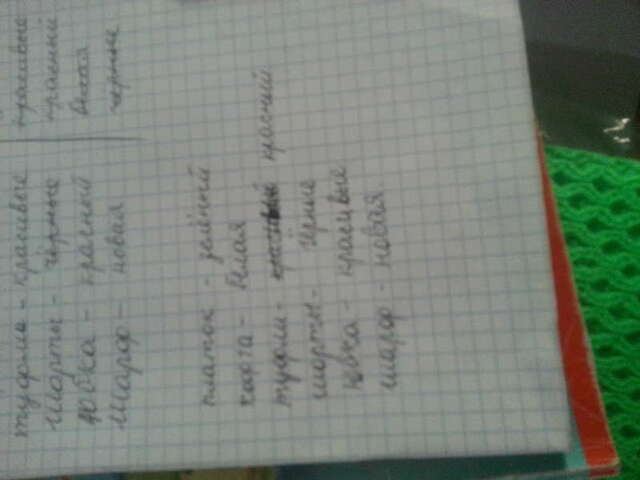 туфли - красивые красивые
шорты - чёрные красный
юбка - красный белая
шарф - новая черные
платок - зелёный
- белая
туфли - красный
шорты - чёрние
юбка - красивые
шарф - новая